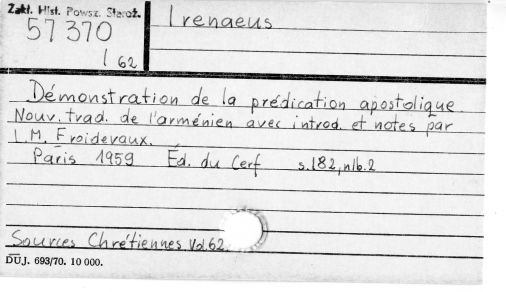 Zakł. Hist. Powsz. Staroż.
57370
I 62
Irenaeus
Démonstration de la prédication apostolique
Nouv. trad. de l'arménien avec introd. et notes par
L.M. Froidevaux.
Paris 1959 Éd. du Cerf s.182, nlb.2
Sources Chrétiennes Vol. 62.
DUJ. 693/70. 10 000.